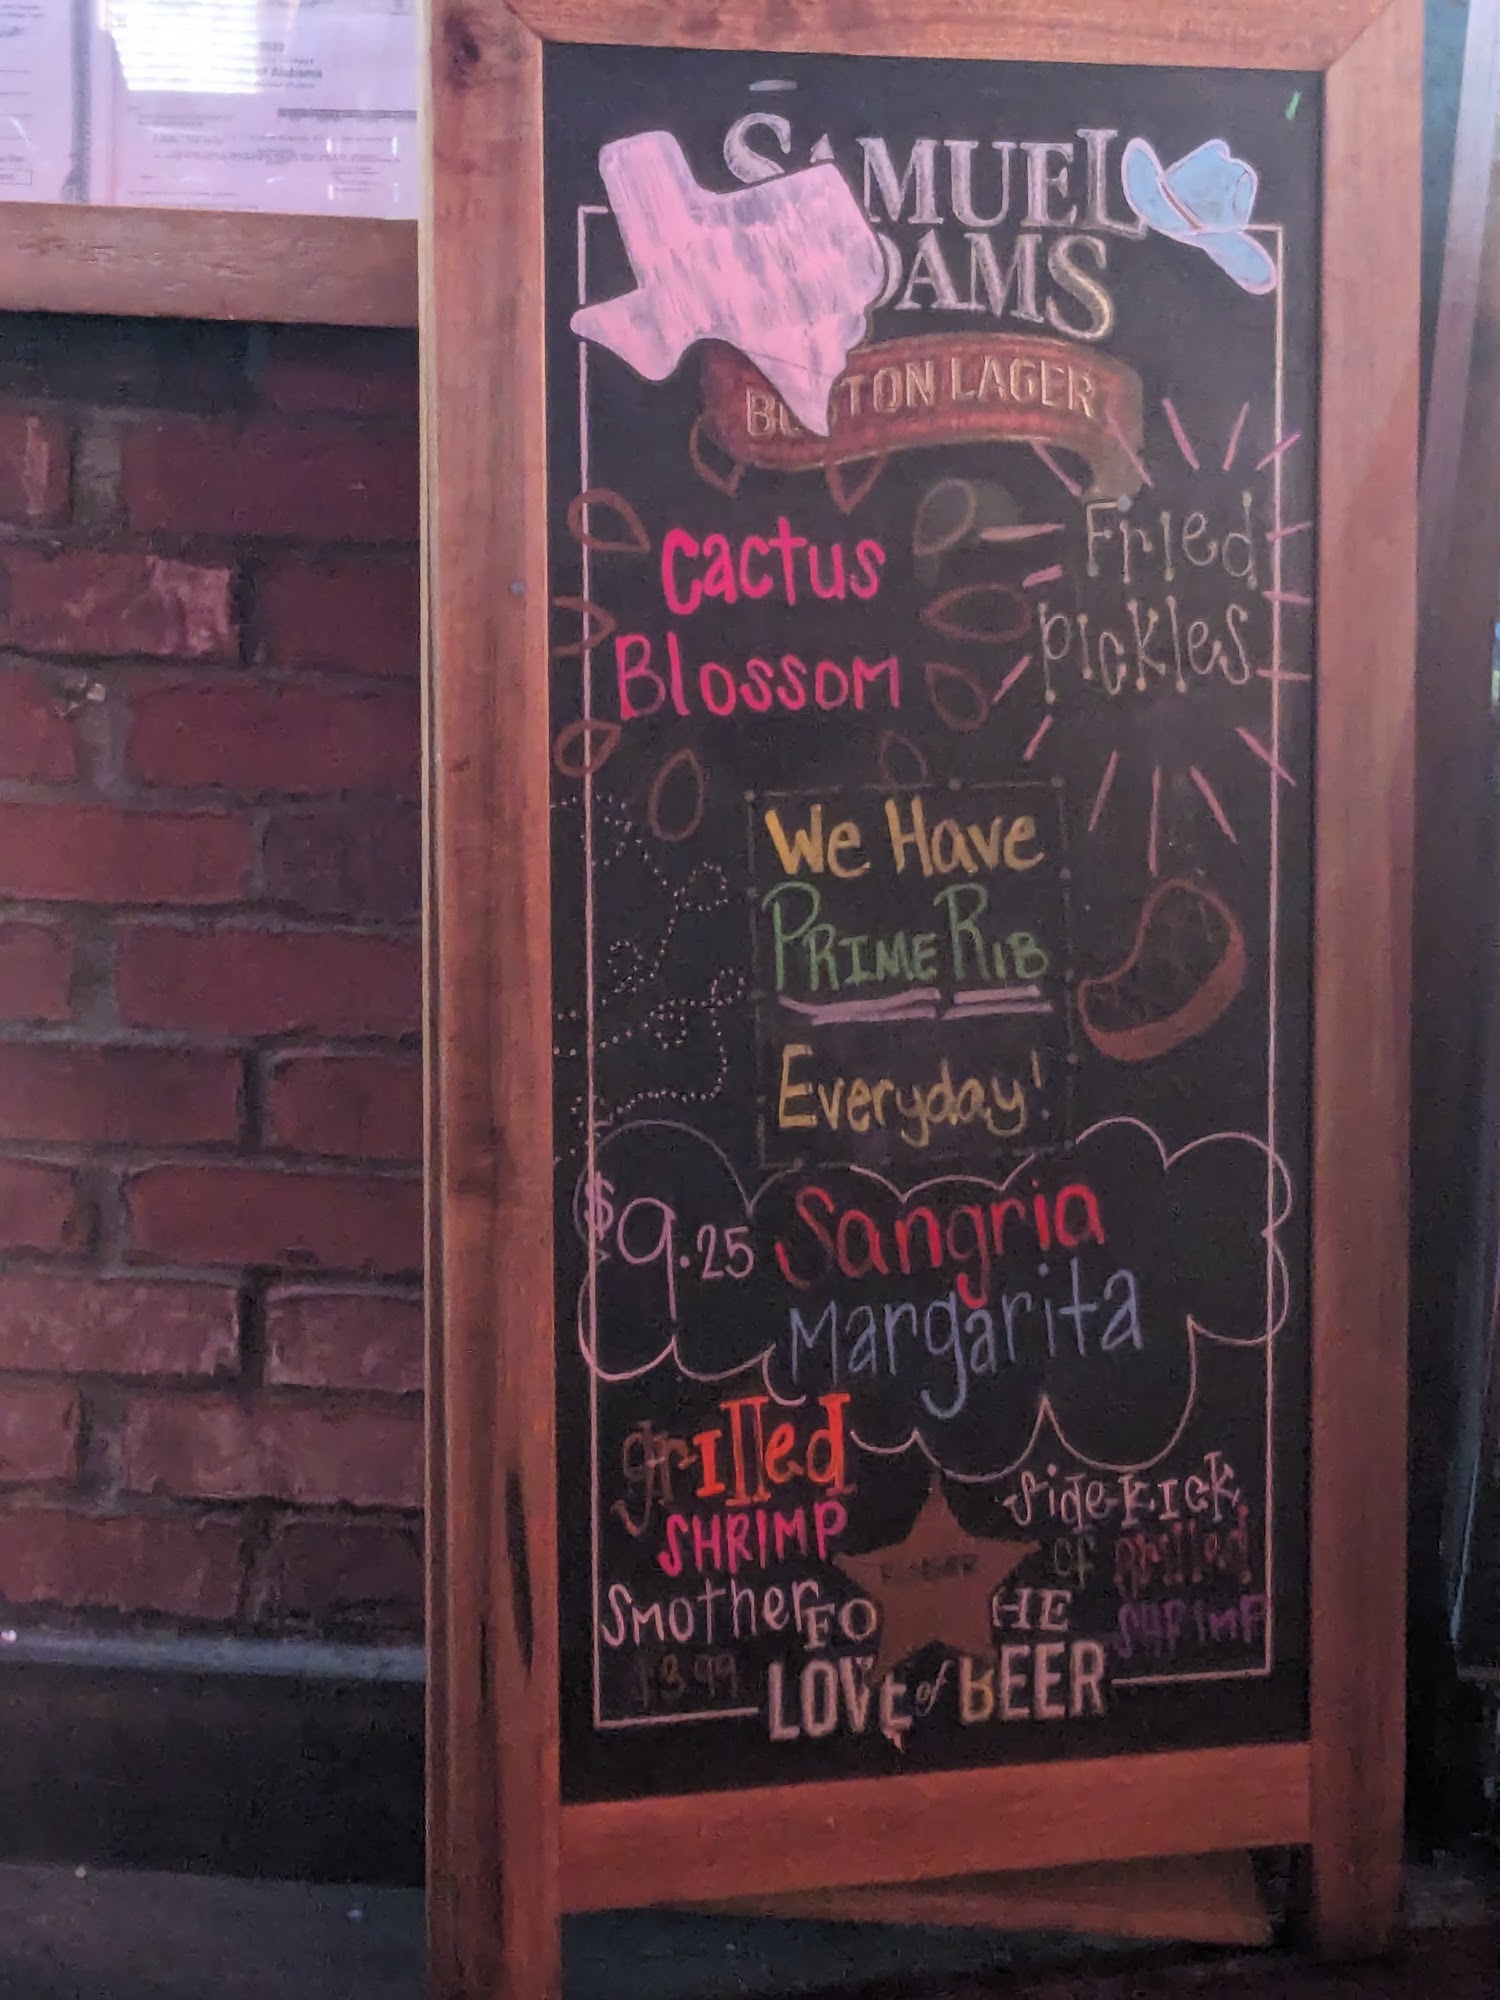 SAMUEL
DAMS
BOSTON LAGER
Cactus
Blossom
Fried
pickles
We Have
PRIME RIB
Everyday!
$9.25 Sangria
Margarita
grilled
SHRIMP
Smother
$3.99
Sidekick
of grilled
SHRIMP
FO HE
LOVE of BEER